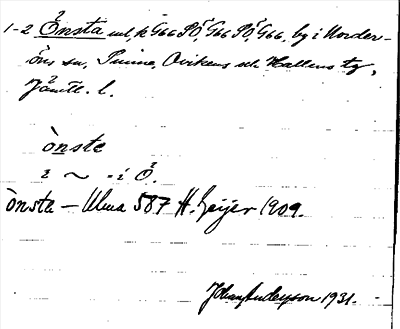 1-2 Önsta uul, k G66 SÖ, G66 SÖ, G66, by i Norder-
öns sn, Sunne, Ovikens och Hallens tg,
Jämtl. l.
ònste
i ~ - i Ö.
ònsta – Ulma 587 H. Geijer 1909.
Johan Anderson 1931.